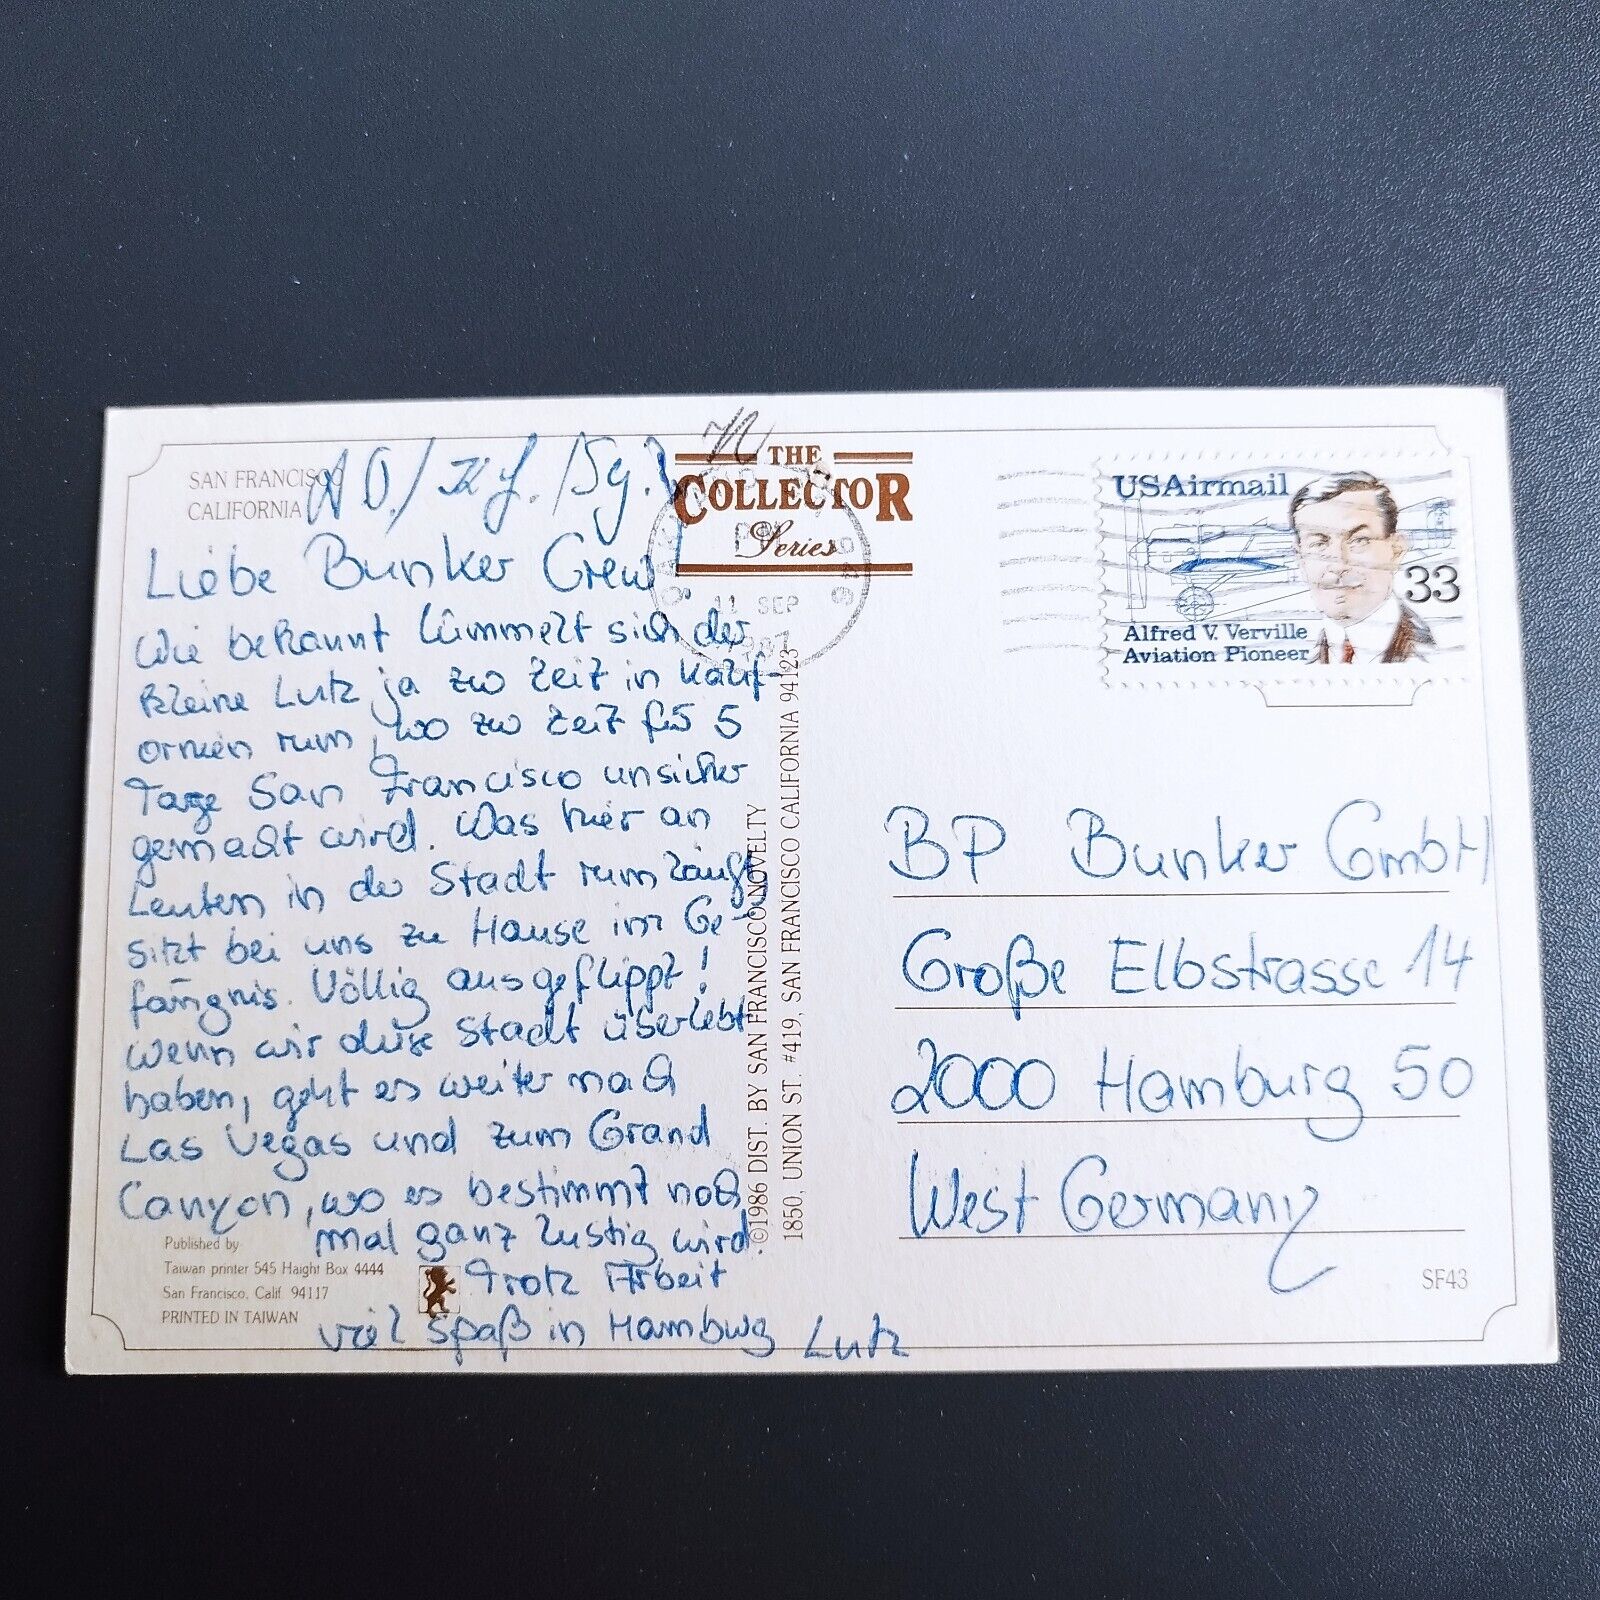 SAN FRANCISCO
CALIFORNIA
THE
COLLECTOR
Series
PM
11 SEP
1987
USAirmail
33
Alfred V. Verville
Aviation Pioneer
Liebe Bunker Crew!
Wie bekannt lümmelt sich der
kleine Lutz ja zur Zeit in Kalif-
ornien rum, wo zur Zeit für 5
Tage San Francisco unsicher
gemacht wird. Was hier an
Leuten in der Stadt rumläuft
sitzt bei uns zu Hause im Ge-
fängnis. Völlig ausgeflippt!
Wenn wir diese Stadt überlebt
haben, geht es weiter nach
Las Vegas und zum Grand
Canyon, wo es bestimmt noch
mal ganz lustig wird.
Trotz Arbeit
viel Spaß in Hamburg Lutz
Published by
Taiwan printer 545 Haight Box 4444
San Francisco, Calif. 94117
PRINTED IN TAIWAN
©1986 DIST. BY SAN FRANCISCO NOVELTY
1850, UNION ST. #419, SAN FRANCISCO CALIFORNIA 94123
BP Bunker GmbH
Große Elbstrasse 14
2000 Hamburg 50
West Germany
SF43